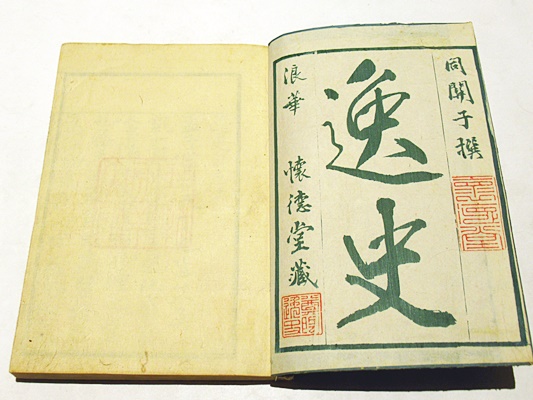 同關子撰
逸史
浪華　懷德堂藏